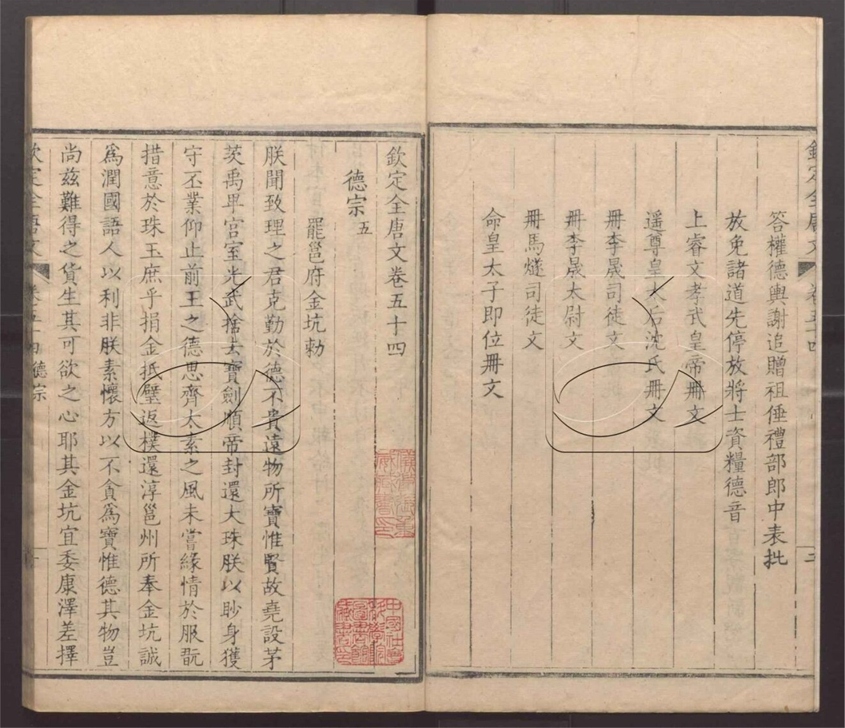 答權德輿謝追贈祖倕禮部郎中表批
放免諸道先停放將士資糧德音
上睿文孝武皇帝冊文
遥尊皇太后沈氏冊文
冊李晟司徒文
冊李晟太尉文
冊馬燧司徒文
命皇太子即位冊文
欽定全唐文卷五十四
德宗五
罷邕府金坑勅
朕聞致理之君克勤於德不貴遠物所寶惟賢故堯設茅
茨禹卑宫室光武捨去寶劍順帝封還大珠朕以眇身獲
守丕業仰止前王之德思齊太素之風未嘗緣情於服翫
措意於珠玉庶乎捐金抵璧返樸還淳邕州所奉金坑誠
爲潤國語人以利非朕素懷方以不貪爲寶惟德其物豈
尚兹難得之貨生其可欲之心耶其金坑宜委康澤差擇
欽定全唐文
卷五十四德宗